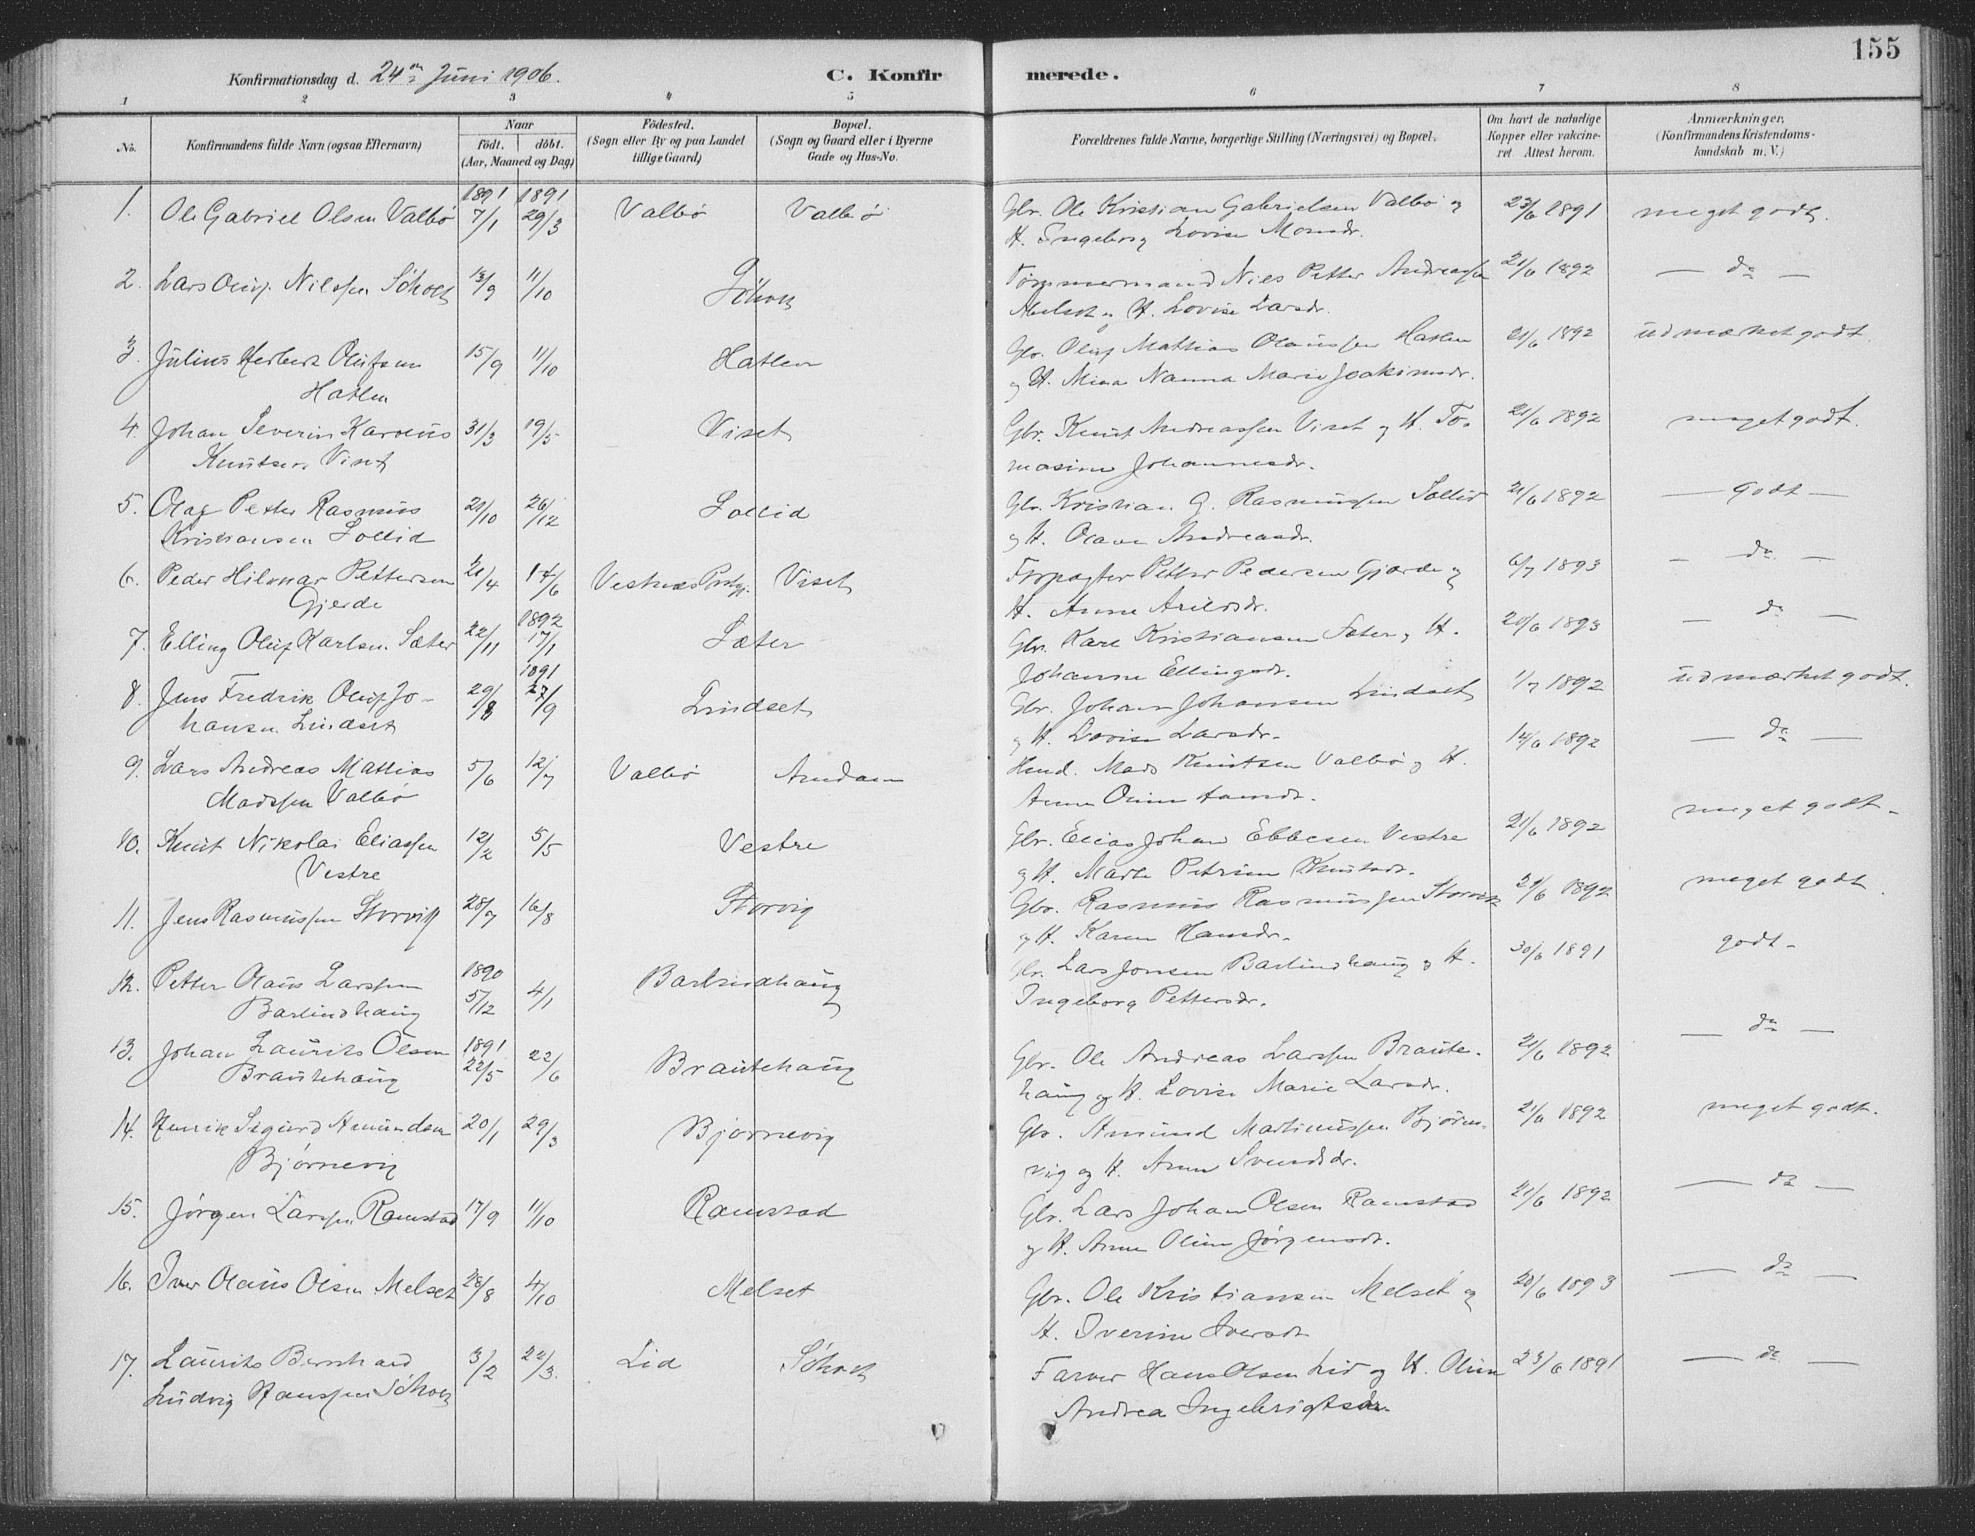 155
Konfirmationsdag d. 24de Juni 1906. C. Konfirmerede.
1 2 3 4 5 6 7 8
No. Konfirmandens fulde Navn (ogsaa Efternavn) Naar födt. döbt. (Aar, Maaned og Dag) Födested. (Sogn eller By og paa Landet tillige Gaard) Bopæl. (Sogn og Gaard eller i Byerne Gade og Hus-No. Forældrenes fulde Navne, borgerlige Stilling (Næringsvei) og Bopæl. Om havt de naturlige Kopper eller vaccineret. Attest herom. Anmærkninger. (Konfirmandens Kristendomskundskab m. V.)
1. Ole Gabriel Olsen Valbö 1891 7/1 1891 29/3 Valbö Valbö Gbr. Ole Kristian Gabrielsen Valbö og 23/6 1891 meget godt.
H. Ingeborg Lovise Monsdr.
2. Lars Oluf Nilssen Söholt 13/9 11/10 Söholt Tømmermand Nils Petter Andreassen 21/6 1892 — do —
H. Lovise Larsdr.
3. Julius Herbert Olufsen 15/9 11/10 Hatlen Gbr. Oluf Mattias Olaussen Hatlen 21/6 1892 udmærket godt.
Hatlen og H. Mina Nanna Marie Joakimsdr.
4. Johan Severin Karolus 31/3 19/5 Viset Gbr. Knut Andreassen Viset og H. To- 21/6 1892 meget godt.
Knutsen Viset masine Johannesdr.
5. Olaf Petter Rasmus 21/10 26/12 Sollid Gbr. Kristian G. Rasmussen Sollid 21/6 1892 — Godt —
Kristiansen Sollid og H. Olave Andreasdr.
6. Peder Hilmar Pettersen 21/4 14/6 Vestnes Prstgj. Viset Forpagter Petter Pedersen Gjærde og 6/7 1893 — do —
Gjerde H. Anne Arildsdr.
7. Elling Oluf Karlsen Sæter 22/11 1892 17/1 Sæter Gbr. Karl Kristiansen Sæter og H. 20/6 1893 — do —
Johanne Ellingsdr.
8. Jens Fredrik Oluf Jo- 29/8 1891 27/9 Lindset Gbr. Johan Johansen Lindset 1/7 1892 udmærket godt.
hansen Lindset og H. Lovise Larsdr.
9. Lars Andreas Mattias 5/6 12/7 Valbö Amdam Hmd. Mads Knutsen Valbö og H. 14/6 1892 — do —
Madssen Valbö Anne Oline
10. Knut Nikolai Eliassen 12/2 5/5 Vestre Gbr. Elias Johan Ebbesen Vestre 21/6 1892 meget godt —
Vestre og H. Marte Petrine Knutsdr.
11. Jens Rasmussen Storvig 28/7 16/8 Storvig Gbr. Rasmus Rasmussen Storvik 21/6 1892 meget godt.
og H. Karen Hansdr.
12. Petter Olaus Larssen 1890 5/12 4/1 Barlindhaug Gbr. Lars Jonsen Barlindhaug og H. 30/6 1891 godt —
Barlindhaug Ingeborg Pettersdr.
13. Johan Laurits Olsen 1891 22/5 22/6 Brautehaug Gbr. Ole Andreas Larssen Braute- 21/6 1892 — do —
Brautehaug haug og H. Lovise Marie Larsdr.
14. Henrik Sigurd Amundsen 20/1 29/3 Bjørnevig Gbr. Amund Martinussen Bjørne- 21/6 1892 meget godt.
Bjørnevig vig og H. Anne Svendsdr.
15. Jørgen Larssen Ramstad 17/9 11/10 Ramstad Gbr. Lars Johan Olsen Ramstad 21/6 1892 — do —
og H. Anne Oline Jørgensdr.
16. Iver Olaus Olsen Melset 28/8 4/10 Melset Gbr. Ole Kristiansen Melset og 20/6 1893 — do —
H. Iverine Iversdr.
17. Laurits Bernhard 3/2 22/3. Lid Söholt Farver Hans Olsen Lid og H. Oline 23/6 1891 — do —
Ludvig Hanssen Söholt Andrea Ingebrigtsdr.